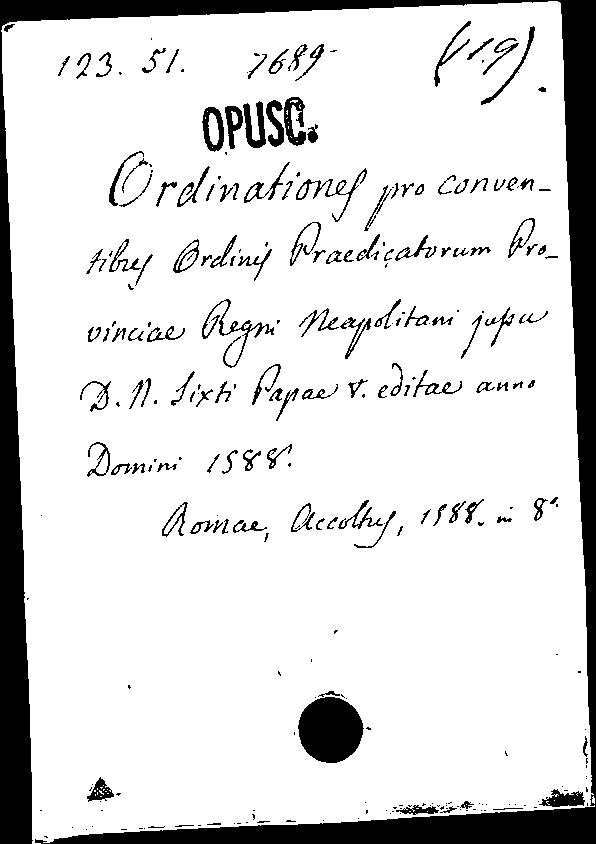 123. 51. 7689 (V19).
OPUSC.
Ordinationes pro conven-
tibus Ordinis Praedicatorum Pro-
vinciae Regni Neapolitani jussu
D. N. Sixti Papae V. editae anno
Domini 1588.
Romae, Accoltus, 1588. in 8°.